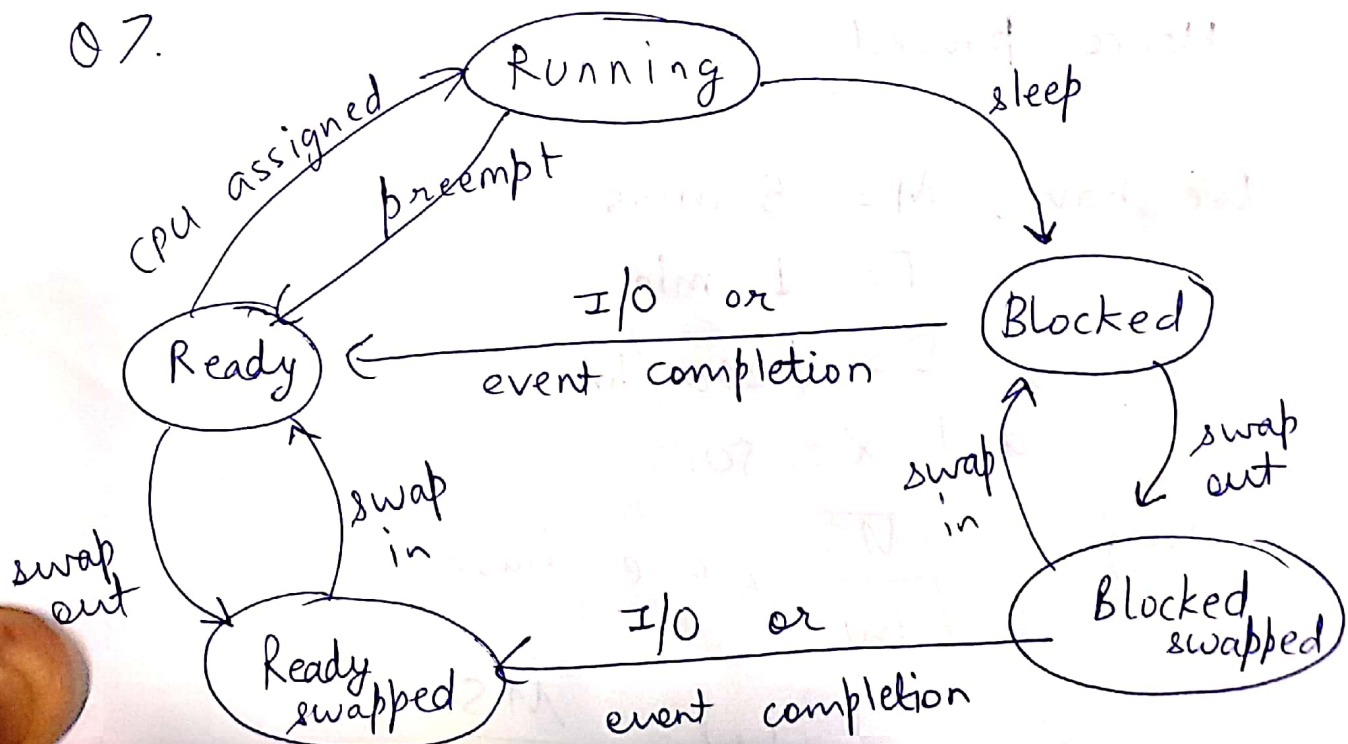 Q7.
Running
CPU assigned
preempt
sleep
I/O or
event completion
Ready
Blocked
swap
out
swap
in
swap
in
swap
out
Ready
swapped
I/O or
event completion
Blocked
swapped